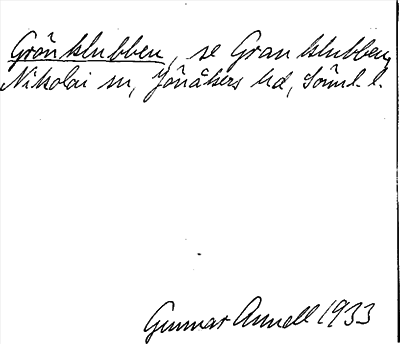 Grönklubben, se Granklubben,
Nikolai sn, Jönåkers hd, Söml. l.
Gunnar Annell 1933